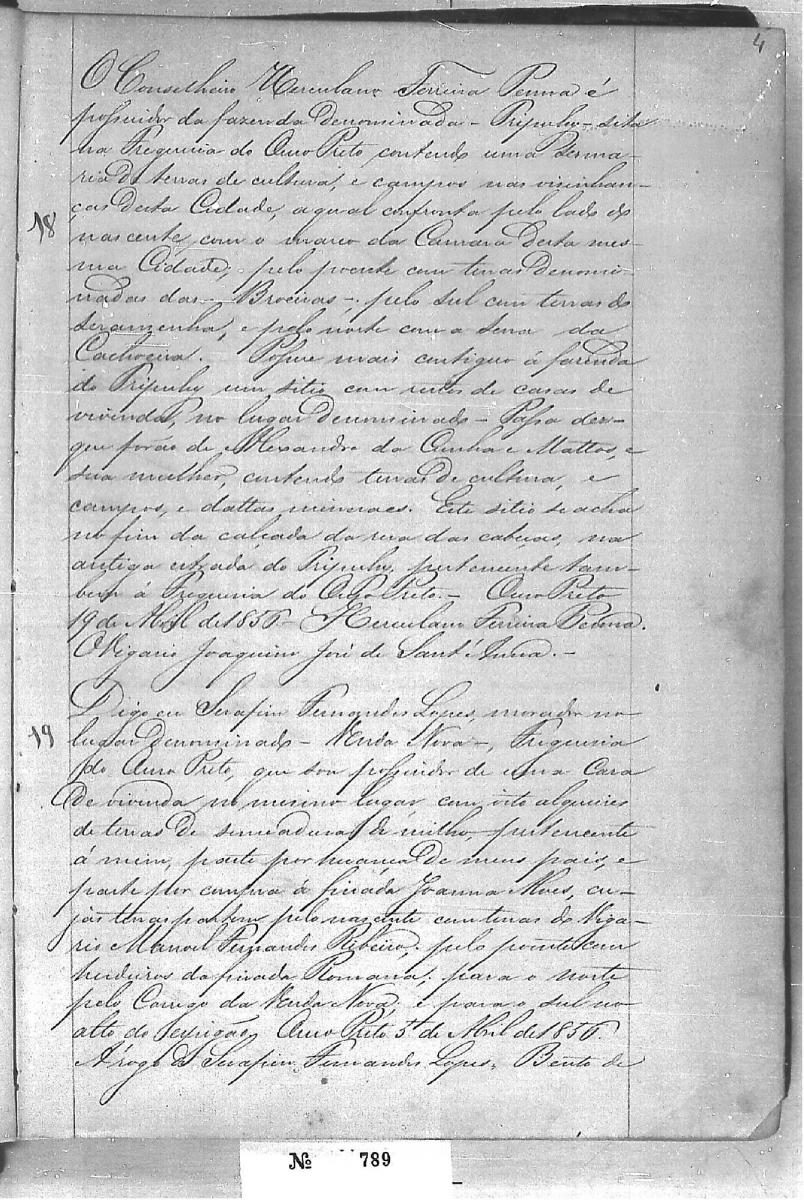 4
O Conselheiro Herculano Ferreira Penna é
possuidor da fazenda denominada - Tripuhy - sita
na Freguesia do Ouro Preto, contendo uma sesma-
ria de terras de cultura, e campos nas visinhan-
18
ças desta Cidade, a qual confronta pelo lado do
nascente, com o marco da Camara desta mes-
ma Cidade; pelo poente com terras denomi-
nadas das - Broeiras -, pelo sul com terras do
Seramenha, e pelo norte com a Serra da
Cachoeira. - Possue mais contiguo á fazenda
do Tripuhy um sitio com restos de casas de
vivenda, no lugar denominado - Passa dez -
que forão de Alexandre da Cunha e Mattos, e
sua mulher, contendo terras de cultura, e
campos, e dattas mineraes. Este sitio se acha
no fim da calçada da rua das cabeças, na
antiga estrada do Tripuhy, pertencente tam-
bem á Freguesia do Ouro Preto. - Ouro Preto
19 de Abril de 1856 - Herculano Ferreira Penna.
O Vigario Joaquim José de Sant'Anna. -
Digo eu Serafim Fernandes Lopes, morador no
19
lugar denominado - Venda Nova -, Freguesia
do Ouro Preto, que sou possuidor de uma Casa
de vivenda no mesmo lugar com oito alqueires
de terras de semeadura de milho, pertencente
á mim, parte por herança de meus pais, e
parte por compra á finada Joanna Alves, cu-
jas terras partem pelo nascente com terras do Viga-
rio Manoel Fernandes Ribeiro; pelo poente com
herdeiros da finada Romana; para o norte
pelo Corrego da Venda Nova, e para o sul no
alto do espigão. Ouro Preto 5 de Abril de 1856.
A rogo de Serafim Fernandes Lopes, Bento de
Nº 789